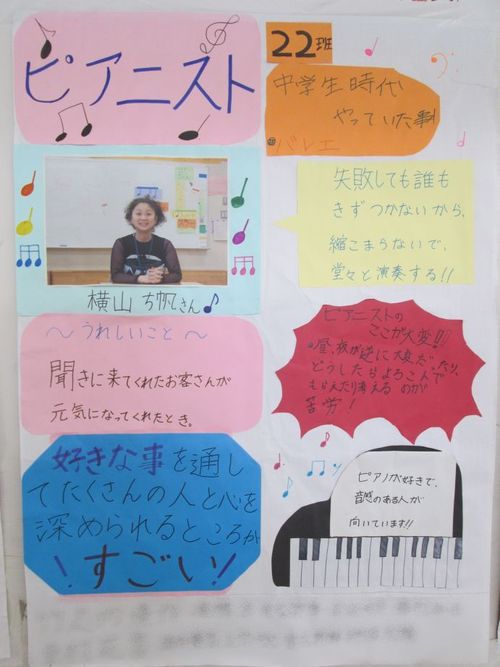 ピアニスト
22班
中学生時代
やっていた事!
バレエ
失敗しても誰も
きずつかないから、
縮こまらないで、
堂々と演奏する!!
横山 ち帆さん
〜うれしいこと〜
聞きに来てくれたお客さんが
元気になってくれたとき。
ピアニストの
ここが大変!!
昼、夜が逆に大変だったり、
どうしたらよろこんで
もらえたり考えるのが
苦労!
好きな事を通し
てたくさんの人と心を
深められるところが
すごい!
ピアノが好きで、
音感のある人が
向いています!!